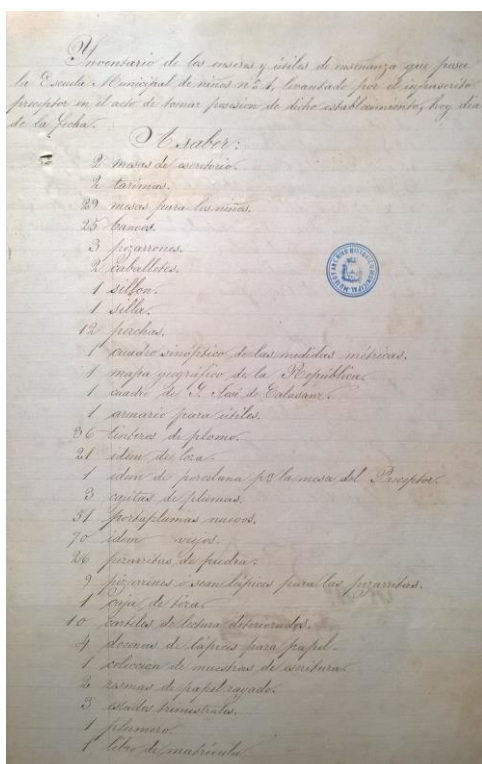 Inventario de los enseres y útiles de enseñanza que posee
la Escuela Municipal de niños nº 1, levantado por el infrascrito
preceptor en el acto de tomar posesion de dicho establecimiento, hoy dia
de la fecha.
A saber:
2 mesas de escritorio.
2 tarimas.
29 mesas para los niños.
25 bancos.
3 pizarrones.
2 caballetes.
1 sillon.
1 silla.
12 perchas.
1 cuadro sinóptico de las medidas métricas.
1 mapa geográfico de la República.
1 cuadro de S. José de Calasanz.
1 armario para útiles.
36 tinteros de plomo.
21 idem de loza.
1 idem de porcelana pª la mesa del Preceptor.
3 cajitas de plumas.
51 portaplumas nuevos.
70 idem viejos.
26 pizarritas de piedra.
9 pizarrines ó sean lápices para las pizarritas.
1 caja de tiza.
10 carteles de lectura deteriorados.
4 docenas de lápices para papel.
1 coleccion de muestras de escritura.
2 resmas de papel rayado.
3 estados trimestrales.
1 plumero.
1 libro de matrícula
ARCHIVO HISTORICO MUNICIPAL